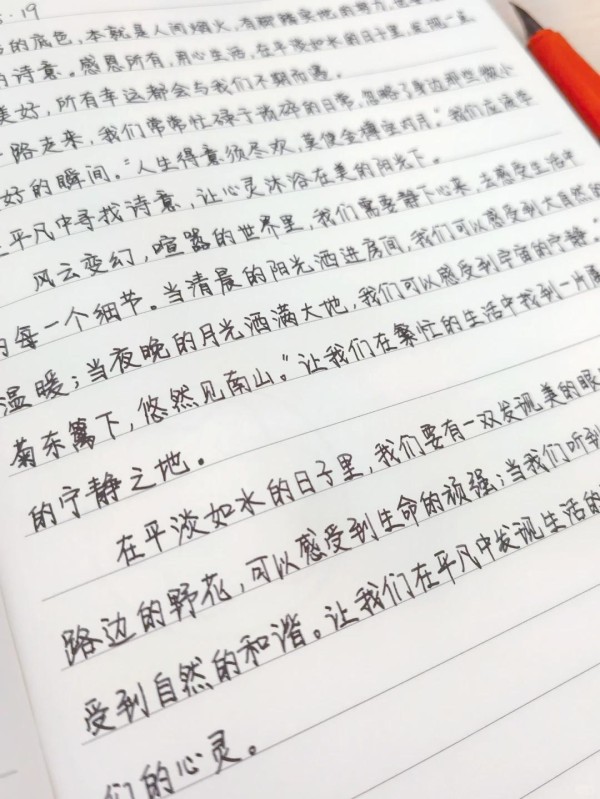 .19
的底色，本就是人间烟火，有脚踏实地的努力，也
的诗意。感恩所有，用心生活，在平淡如水的日子里，发现一点
美好，所有幸运都会与我们不期而遇。
一路走来，我们常常忙碌于琐碎的日常，忽略了身边那些微小
好的瞬间。“人生得意须尽欢，莫使金樽空对月。”我们应该学
平凡中寻找诗意，让心灵沐浴在美的阳光下。
风云变幻，喧嚣的世界里，我们需要静下心来，去感受生活中
的每一个细节。当清晨的阳光洒进房间，我们可以感受到大自然的
温暖；当夜晚的月光洒满大地，我们可以感受到宇宙的宁静。“
菊东篱下，悠然见南山。”让我们在繁忙的生活中找到一片属
的宁静之地。
在平淡如水的日子里，我们要有一双发现美的眼
路边的野花，可以感受到生命的顽强；当我们听到
受到自然的和谐。让我们在平凡中发现生活的
们的心灵。